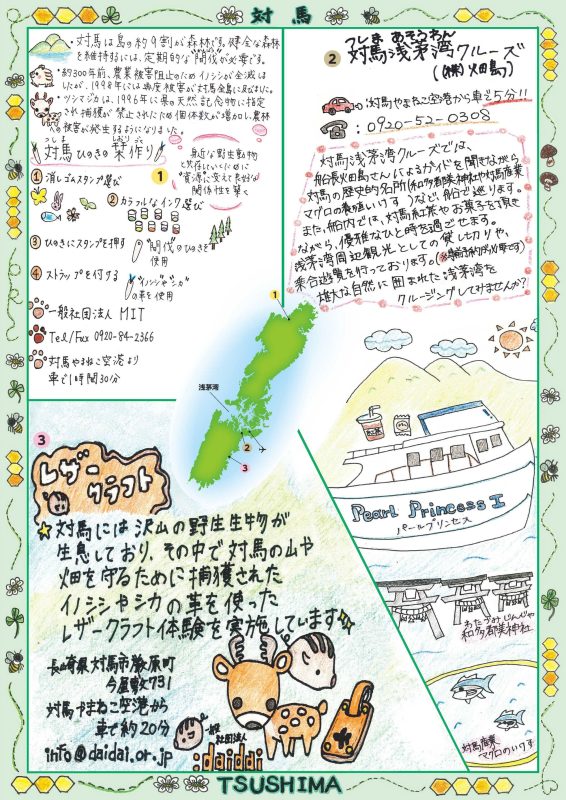 対馬
・対馬は島の約9割が森林です。健全な森林
を維持するには、定期的な"間伐"が必要です。
・約300年前、農業被害阻止のためイノシシが全滅し
たが、1998年には再度被害が対馬全島に及びました。
・ツシマジカは、1996年に県の天然記念物に指定
され捕獲が禁止されたため個体数が増加し、農林
への被害が発生するようになりました。
つしま しおりづくり
対馬ひのきの栞作り
身近な野生動物
と共存していくために
"資源に変えて良好な
関係性を築く
1
① 消しゴムスタンプ選び
② カラフルなインク選び
③ ひのきにスタンプを押す
"間伐"のひのきを
使用
④ ストラップを付ける
"イノシシやシカ"
の革を使用
一般社団法人 MIT
Tel/Fax 0920-84-2366
対馬やまねこ空港より
車で1時間30分
2
つしま あそうわん
対馬浅茅湾クルーズ
((株)畑島)
:対馬やまねこ空港から車で5分!!
:0920-52-0308
対馬浅茅湾クルーズでは、
船長畑島さんによるガイドを聞きながら
対馬の歴史的名所(和多都美神社や対馬産業
マグロの養殖いけす)など、船で巡ります。
また、船内では、対馬紅茶やお菓子を頂き
ながら、優雅なひと時を過ごせます。
浅茅湾周辺観光としての貸し切りや、
乗合遊覧を行っております。(※
雄大な自然に囲まれた浅茅湾を
クルージングしてみませんか?
1
浅茅湾
2
3
Pearl Princess I
パールプリンセス
わたづみじんじゃ
和多都美神社
対馬産業
マグロのいけす
3
レザー
クラフト
対馬には沢山の野生生物が
生息しており、その中で対馬の山や
畑を守るために捕獲された
イノシシやシカの革を使った
レザークラフト体験を実施しています
長崎県対馬市厳原町
今屋敷731
対馬やまねこ空港から
車で約20分
info@daidai.or.jp
一般
社団法人
daidai
TSUSHIMA